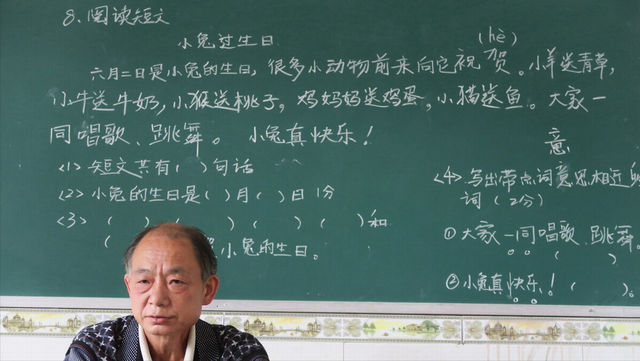 8. 阅读短文
小兔过生日
(hè)
六月二日是小兔的生日，很多小动物前来向它祝贺。小羊送青草，
小牛送牛奶，小猴送桃子，鸡妈妈送鸡蛋，小猫送鱼。大家一
同唱歌、跳舞。小兔真快乐！
<1> 短文共有（ ）句话
<2> 小兔的生日是（ ）月（ ）日 1分
<3> （ ）（ ）（ ）（ ）（ ）和
（ 小兔的生日。
意
<4> 写出带点词意思相近的
词（2分）
① 大家一同唱歌、跳舞。
（ ）
② 小兔真快乐！（ ）。